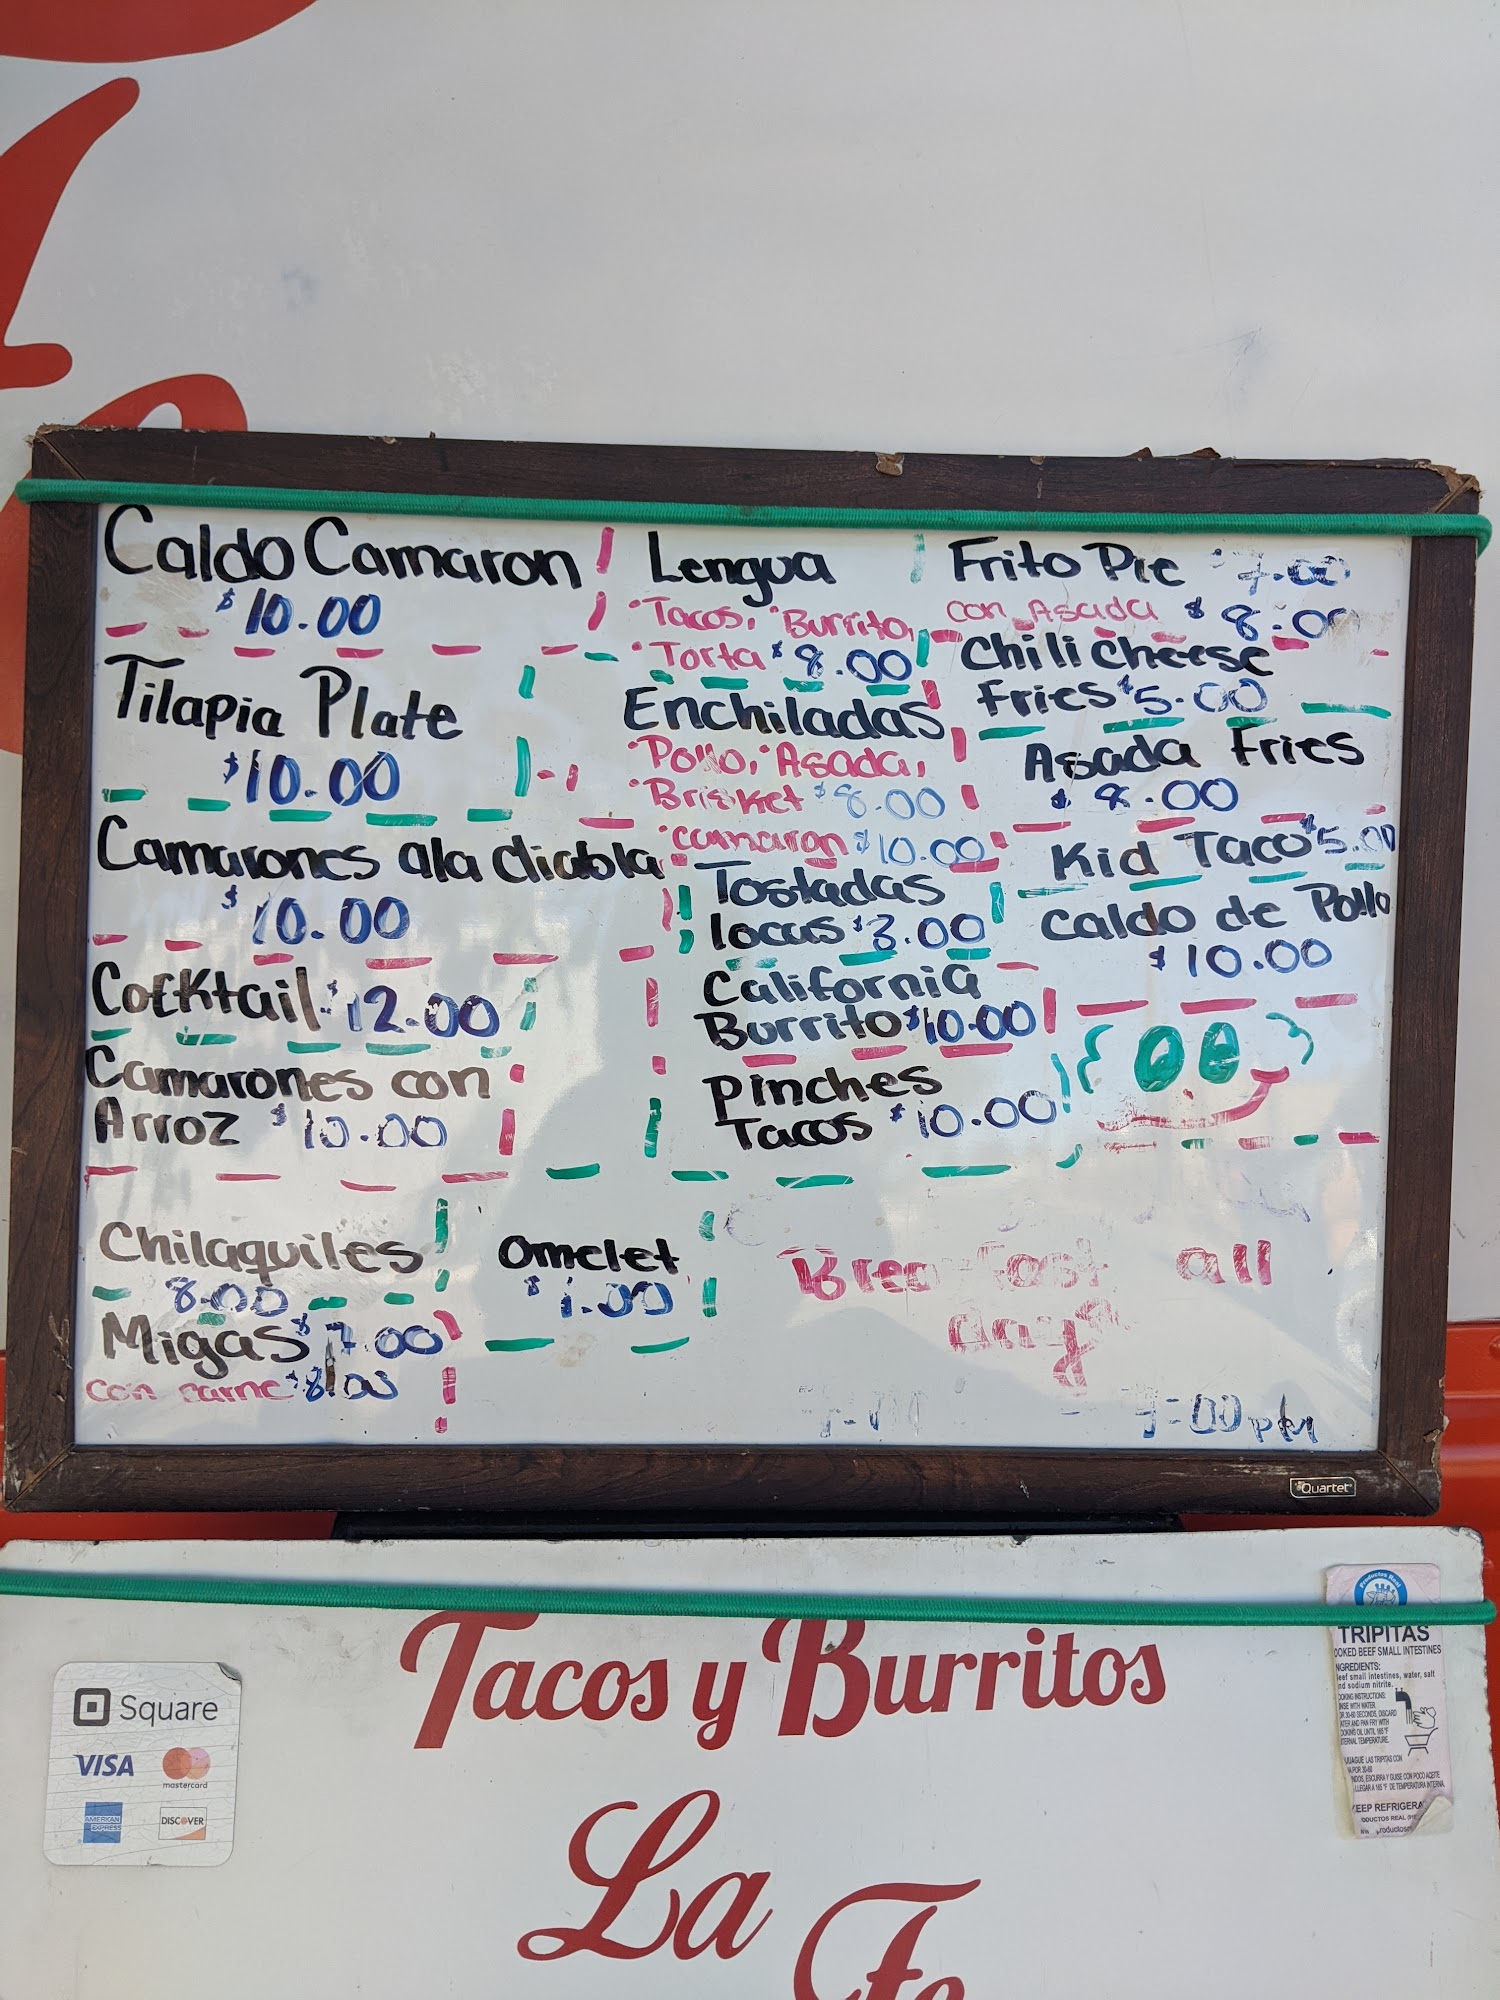 Caldo Camaron
$10.00
Tilapia Plate
$10.00
Camarones ala diabla
$10.00
Cocktail $12.00
Camarones con
Arroz $10.00
Lengua
Tacos, Burrito,
Torta $8.00
Enchiladas
Pollo, Asada,
Brisket $8.00
camaron $10.00
Tostadas
locas $3.00
California
Burrito $10.00
Pinches
Tacos $10.00
Frito Pie $7.00
con Asada $8.00
Chili cheese
Fries $5.00
Asada Fries
$8.00
Kid Taco $5.00
Caldo de Pollo
$10.00
Chilaquiles
8.00
Migas $7.00
con carne $8.00
Omelet
Breakfast all
day
:00 PM
Quartet
Tacos y Burritos
La
Fe
Square
VISA
mastercard
AMERICAN EXPRESS
DISCOVER
Productos Real
TRIPITAS
OOKED BEEF SMALL INTESTINES
NGREDIENTS:
eef small intestines, water, salt
nd sodium nitrite.
EEP REFRIGERA